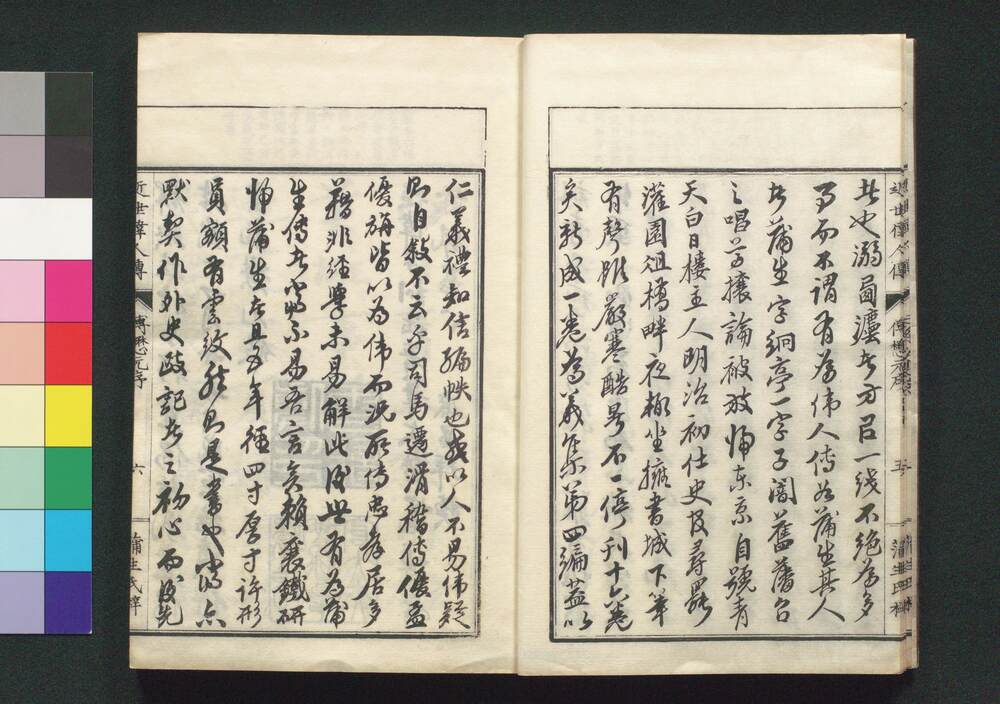 者也溺面濹者方呂一线不絶為多
而不謂有為偉人傳如蒲生其人
者蒲生字絅亭一字子闇舊藩台
之唱尊攘論被放帰东京自號青
天白日樓主人明治初仕史官尋罷
灌園俎樽畔夜榻坐擁書城下筆
有聲雖嚴寒酷暑不一停刊十六卷
矣新成一卷為義集第四編蓋以
仁義禮知信編帙也或以人不易偉疑
則自敍不云乎司馬遷滑稽傳優孟
優旃皆以為偉而況所傳忠孝居多
籍非經學未易解此後世有為蒲
生傳者必不易吾言矣頼襄鐵研
帰蒲生者且五年徑四寸厚寸許形
員額有雲紋然則是書也亦
默契作外史跋記者之初心而後先
近世偉人傳
傳懋元序
五
蒲生氏梓
近世偉人傳
傳懋元序
六
蒲生氏梓